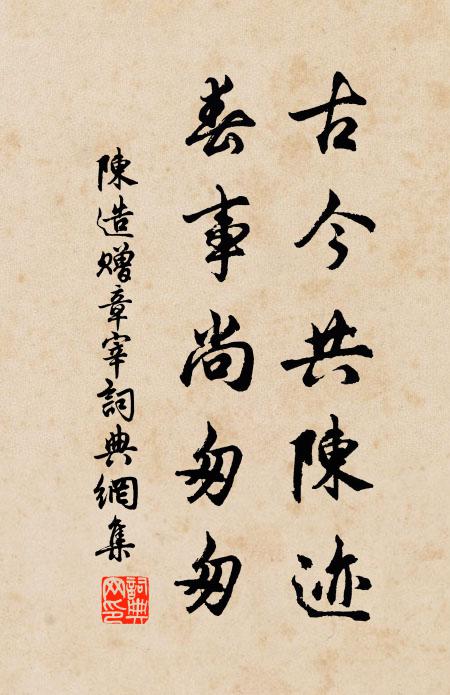 古今共陳迹
春事尚匆匆
陳造贈章宰詞典網集
詞典網印